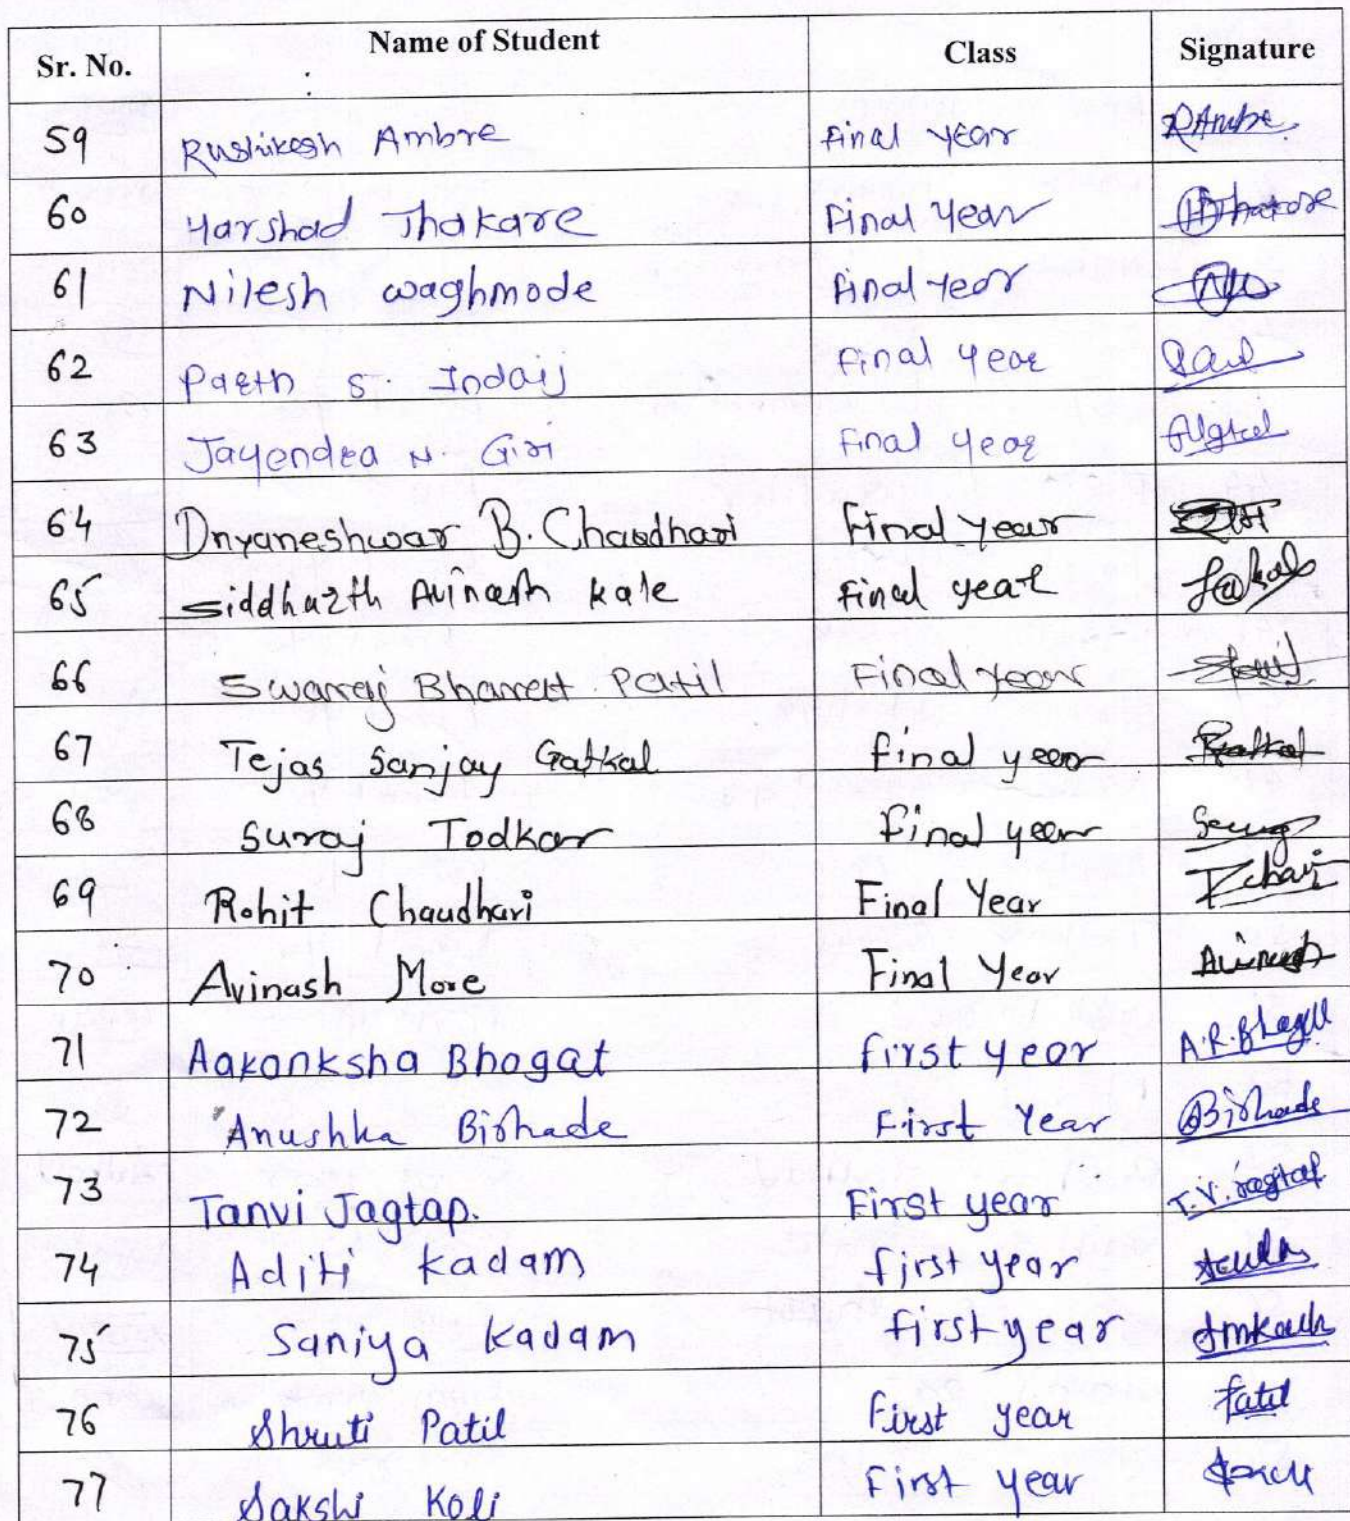 Sr. No. Name of Student Class Signature
59 Rushikesh Ambre Final year RAmbre
60 Harshad Thakare Final Year HThakare
61 Nilesh waghmode Final year
62 Parth S. Indaij Final year
63 Jayendra N. Giri Final year
64 Dnyaneshwar B. Chaudhari Final year
65 Siddharth Avinash kale Final year
66 Swaraj Bharat Patil Final year
67 Tejas Sanjay Gatkal Final year
68 Suraj Todkar Final year
69 Rohit Chaudhari Final Year
70 Avinash More Final Year Avinash
71 Aakanksha Bhagat First year A.R.Bhagat
72 Anushka Birhade First Year ABirhade
73 Tanvi Jagtap. First year T.V.Jagtap
74 Aditi Kadam First year
75 Saniya Kadam First year
76 Shruti Patil First year Patil
77 Sakshi Koli First year